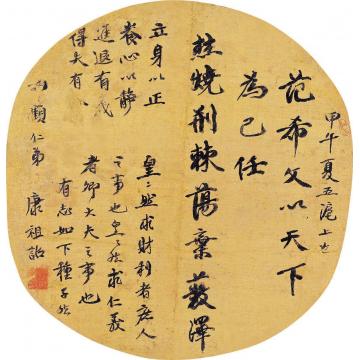 甲午夏五滬上
范希文以天下
為己任
焚燒荊棘蕩棄藪澤
立身以正
養心以靜
進退有
得失有
皇〻然求財利者庶人
之事也皇〻然求仁義
者卿大夫之事也
有志如下種子然
仁弟 康祖詒